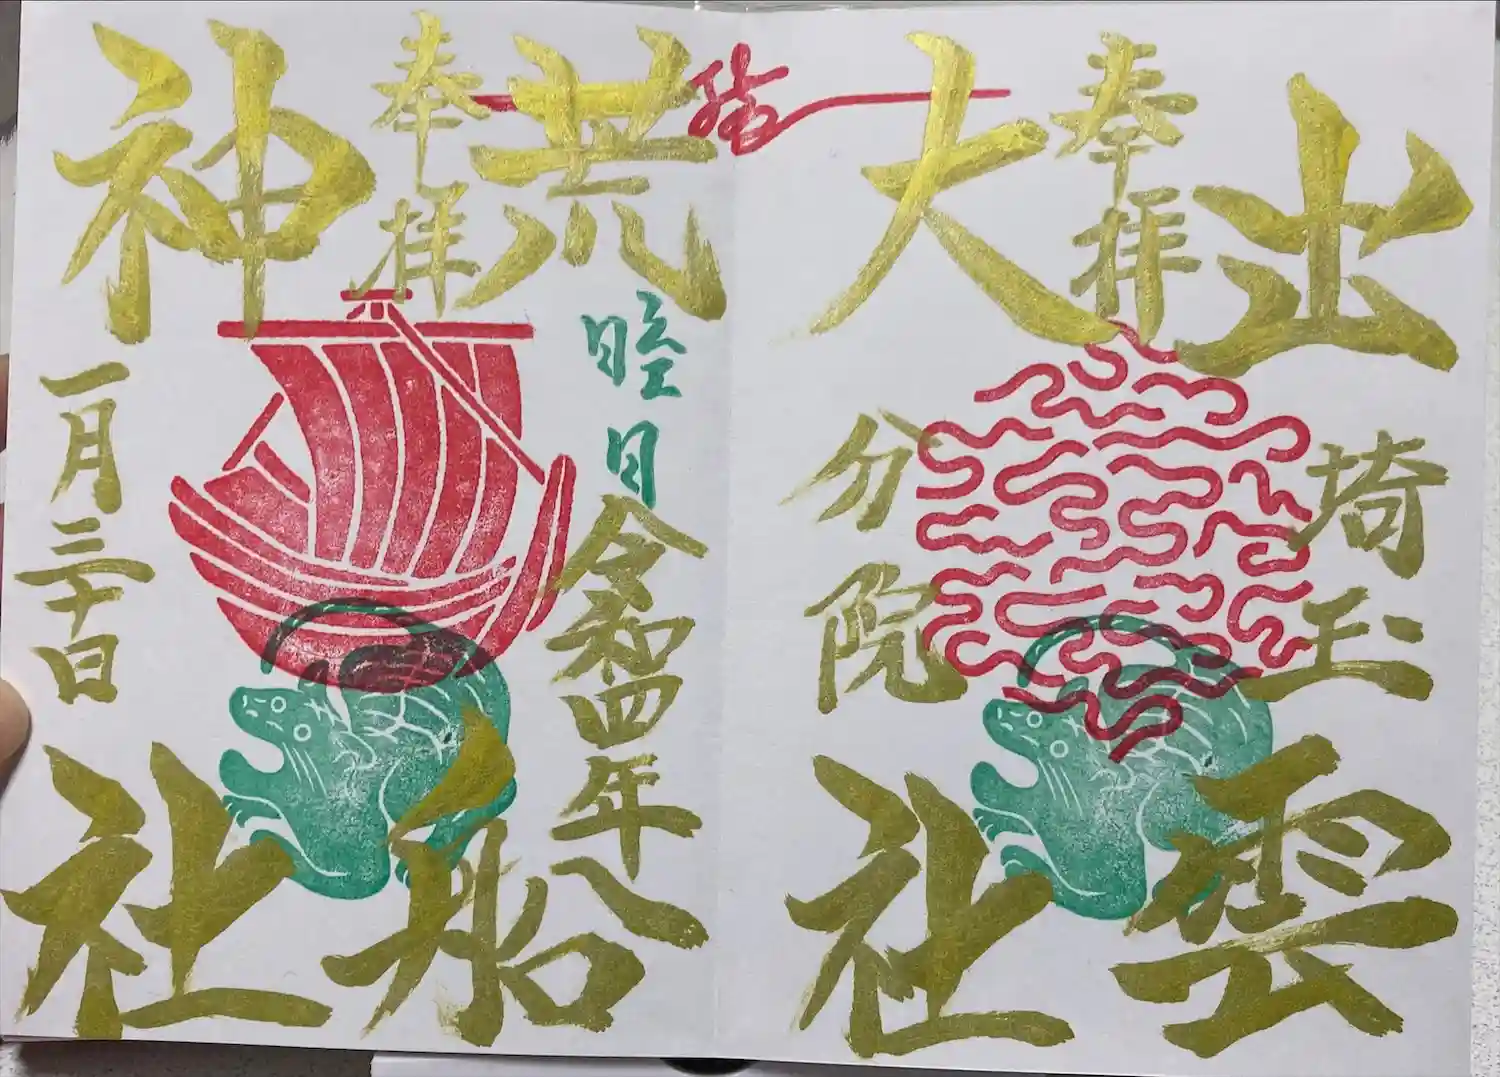 出雲
奉拝
大社
埼玉
分院
荒船
奉拝
神社
睦月
令和四年
一月三十日